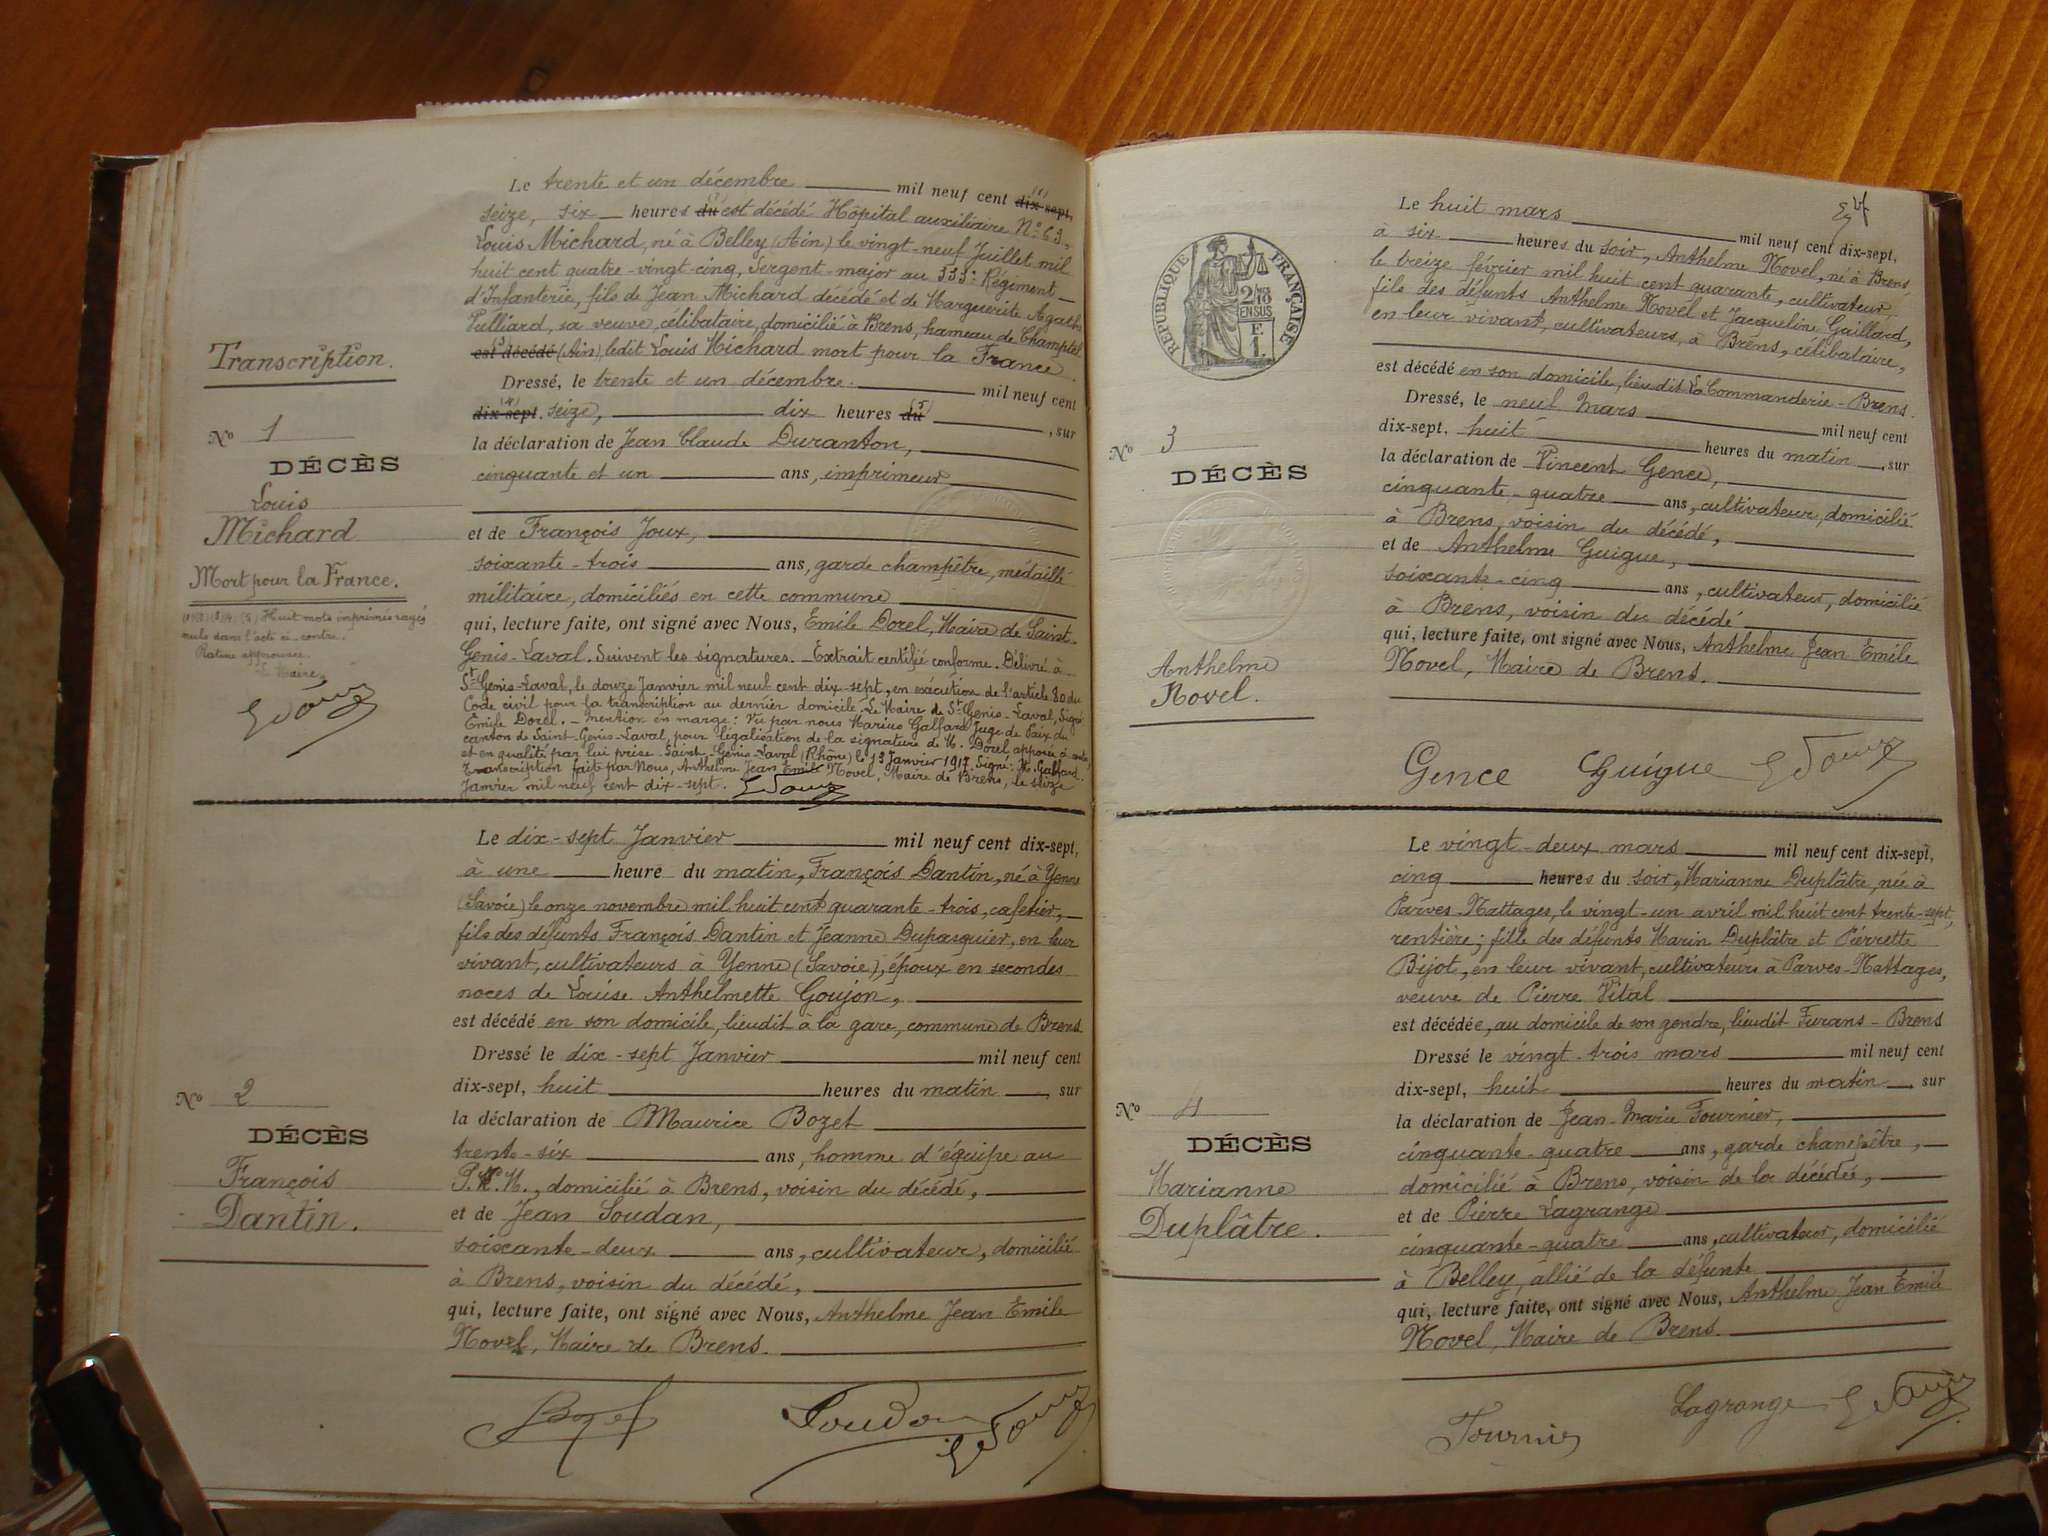 Le trente et un décembre mil neuf cent dix-sept, (1)
seize, six heures du est décédé Hôpital auxiliaire N° 69,
Louis Michard, né à Belley (Ain) le vingt-neuf Juillet mil
huit cent quatre-vingt-cinq, Sergent-major au 333e Régiment
d'Infanterie, fils de Jean Michard décédé et de Marguerite Agathe
Pulliard, sa veuve, célibataire, domicilié à Brens, hameau de Champtel
est décédé (Ain), ledit Louis Michard mort pour la France.
Transcription.
Dressé, le trente et un décembre mil neuf cent
dix-sept. (4) seize, dix heures du (5), sur
N° 1
la déclaration de Jean Claude Duranton,
DÉCÈS
cinquante et un ans, imprimeur
Louis
Michard
et de François Joux,
Mort pour la France.
soixante-trois ans, garde champêtre, médaillé
militaire, domiciliés en cette commune
Huit mots imprimés rayés
nuls dans l'acte ci-contre.
approuvée.
Le Maire,
qui, lecture faite, ont signé avec Nous, Emile Dorel, Maire de Saint-
Genis-Laval. Suivent les signatures. Extrait certifié conforme. Délivré à
St Genis-Laval, le douze Janvier mil neuf cent dix-sept, en exécution de l'article 80 du
Code civil pour la transcription au dernier domicile. Le Maire de St Genis-Laval, Signé
Emile Dorel. Mention en marge: Vu par nous Marius Galfard Juge de Paix du
canton de Saint-Genis-Laval, pour légalisation de la signature de M. Dorel apposée
et en qualité par lui prise. Saint-Genis-Laval (Rhône) le 13 Janvier 1917. Signé: M. Galfard.
Transcription faite par Nous, Anthelme Jean Emile Novel, Maire de Brens, le seize
Janvier mil neuf cent dix-sept.
Le dix-sept Janvier mil neuf cent dix-sept,
à une heure du matin, François Dantin, né à Yenne
(Savoie) le onze novembre mil huit cent quarante-trois, cafetier,
fils des défunts François Dantin et Jeanne Dupasquier, en leur
vivant, cultivateurs à Yenne (Savoie), époux en secondes
noces de Louise Anthelmette Goujon,
est décédé en son domicile, lieudit à la gare, commune de Brens
Dressé le dix-sept Janvier mil neuf cent
dix-sept, huit heures du matin, sur
N° 2
la déclaration de Maurice Bozet
DÉCÈS
trente-six ans, homme d'équipe au
François
P.L.M., domicilié à Brens, voisin du décédé,
Dantin.
et de Jean Soudan,
soixante-deux ans, cultivateur, domicilié
à Brens, voisin du décédé,
qui, lecture faite, ont signé avec Nous, Anthelme Jean Emile
Novel, Maire de Brens.
Bozet
Soudan
Le huit mars mil neuf cent dix-sept,
à six heures du soir, Anthelme Novel, né à Brens
le treize février mil huit cent quarante, cultivateur,
fils des défunts Anthelme Novel et Jacqueline Gaillard,
en leur vivant, cultivateurs, à Brens, célibataire,
RÉPUBLIQUE FRANÇAISE
2/10
EN SUS
F.
1.
est décédé en son domicile, lieu dit La Commanderie-Brens.
Dressé, le neuf mars mil neuf cent
dix-sept. huit heures du matin, sur
N° 3
la déclaration de Vincent Gence,
DÉCÈS
cinquante-quatre ans, cultivateur, domicilié
à Brens, voisin du décédé,
et de Anthelme Guigue,
soixante-cinq ans, cultivateur, domicilié
à Brens, voisin du décédé
Anthelme
Novel.
qui, lecture faite, ont signé avec Nous, Anthelme Jean Emile
Novel, Maire de Brens.
Gence Guigue
Le vingt-deux mars mil neuf cent dix-sept,
cinq heures du soir, Marianne Duplâtre, née à
Parves-Nattages, le vingt-un avril mil huit cent trente-sept,
rentière; fille des défunts Marin Duplâtre et Pierrette
Bijot, en leur vivant, cultivateurs à Parves-Nattages,
veuve de Pierre Vital
est décédée, au domicile de son gendre, lieudit Furans-Brens
Dressé le vingt-trois mars mil neuf cent
dix-sept, huit heures du matin, sur
N° 4
la déclaration de Jean-Marie Fournier,
DÉCÈS
cinquante-quatre ans, garde champêtre,
Marianne
domicilié à Brens, voisin de la décédée,
Duplâtre.
et de Pierre Lagrange
cinquante-quatre ans, cultivateur, domicilié
à Belley, allié de la défunte
qui, lecture faite, ont signé avec Nous, Anthelme Jean Emile
Novel, Maire de Brens.
Fournier
Lagrange